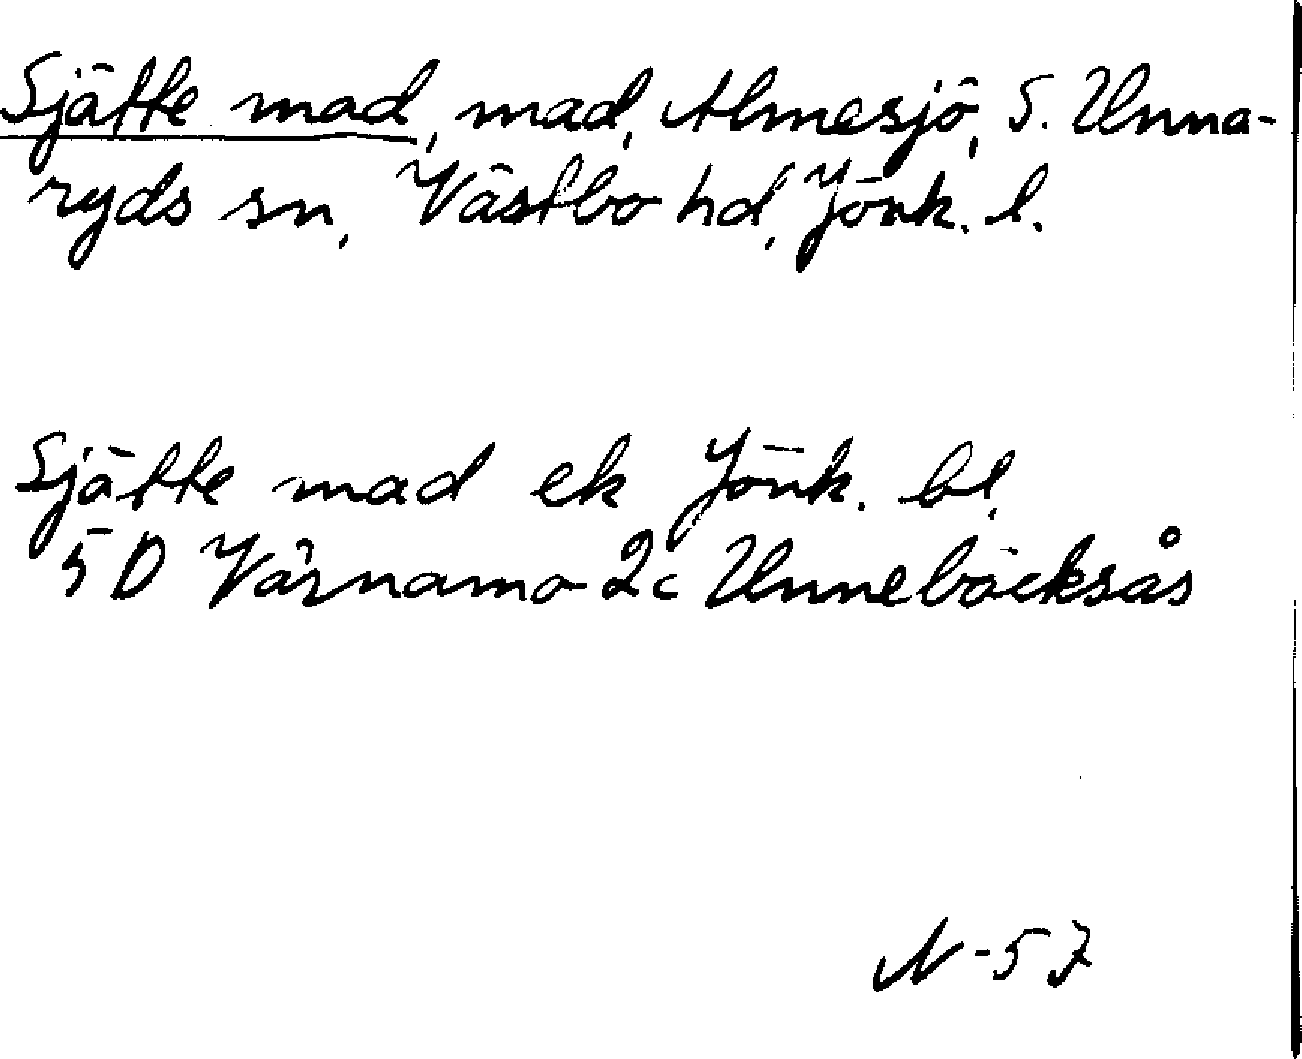 Sjätte mad, mad, Almesjö, S. Unna-
ryds sn, Västbo hd, Jönk. l.
Sjätte mad ek Jönk. bl.
5D Värnamo 2c Unnebäcksås
N-57